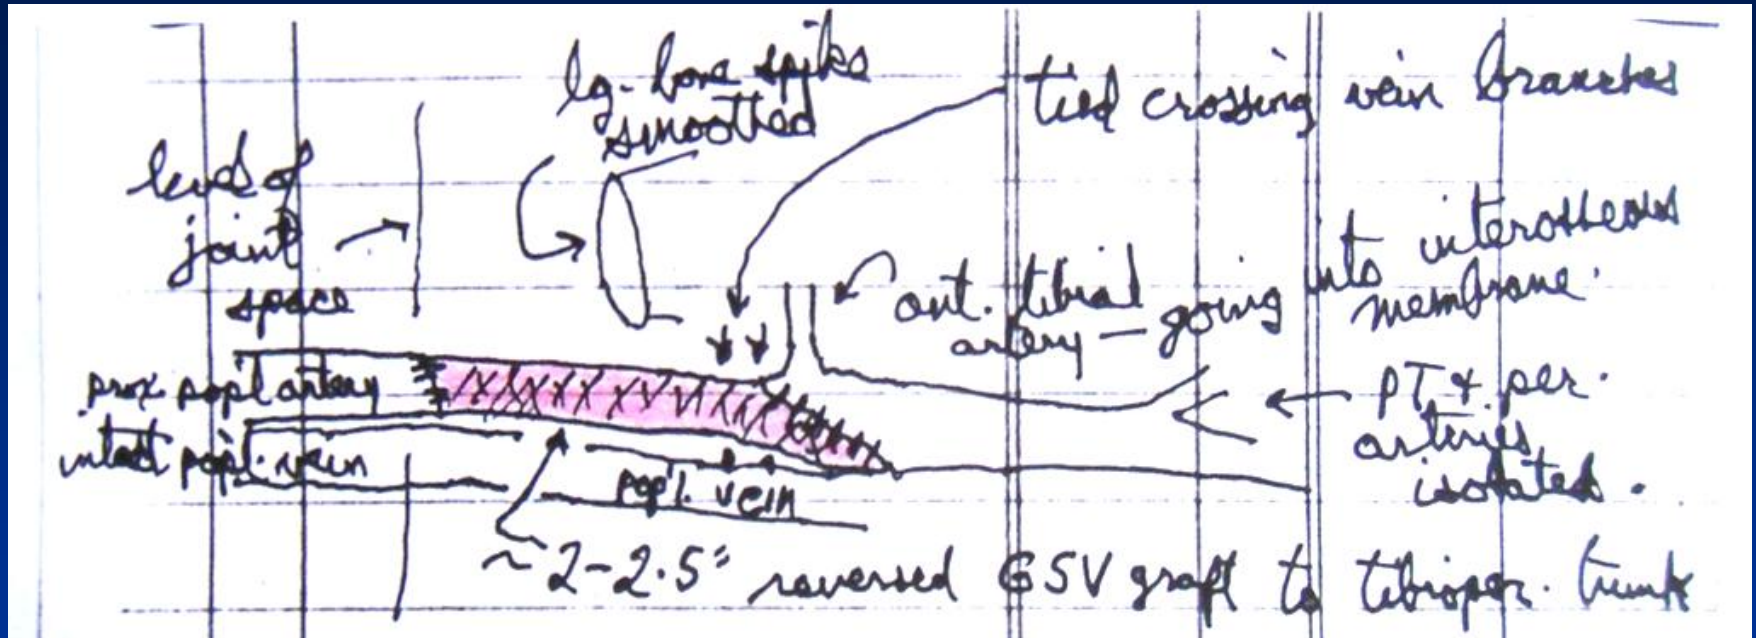 lg. bone spike
smoothed
tied crossing vein branches
level of
joint
space
ant. tibial
artery — going into interosseous
membrane.
prox. popl artery
intact popl. vein
popl. vein
PT & per.
arteries
isolated.
~2-2.5" reversed GSV graft to tibioper. trunk